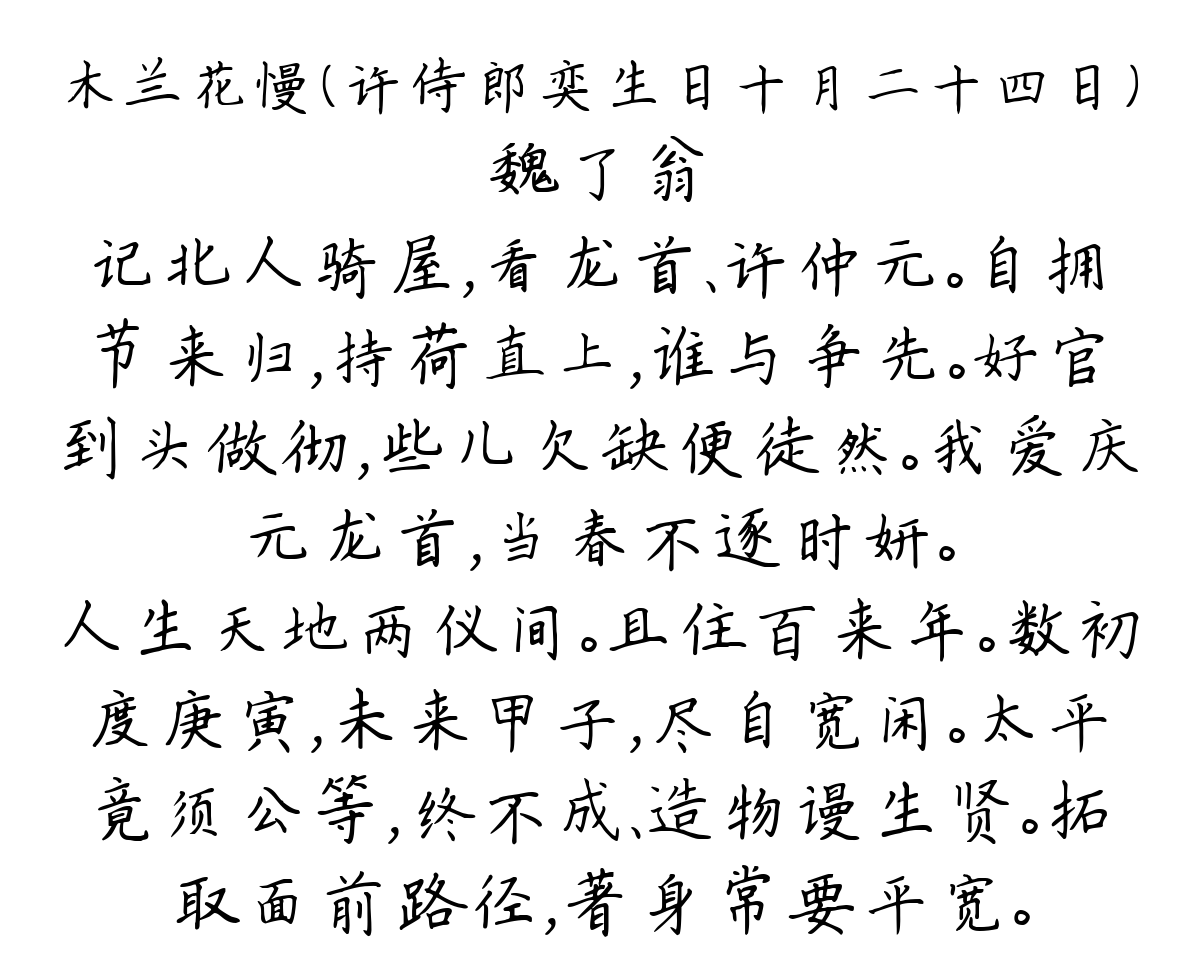 木兰花慢(许侍郎奕生日十月二十四日)
魏了翁
记北人骑屋,看龙首、许仲元。自拥
节来归,持荷直上,谁与争先。好官
到头做彻,些儿欠缺便徒然。我爱庆
元龙首,当春不逐时妍。
人生天地两仪间。且住百来年。数初
度庚寅,未来甲子,尽自宽闲。太平
竟须公等,终不成、造物谩生贤。拓
取面前路径,著身常要平宽。